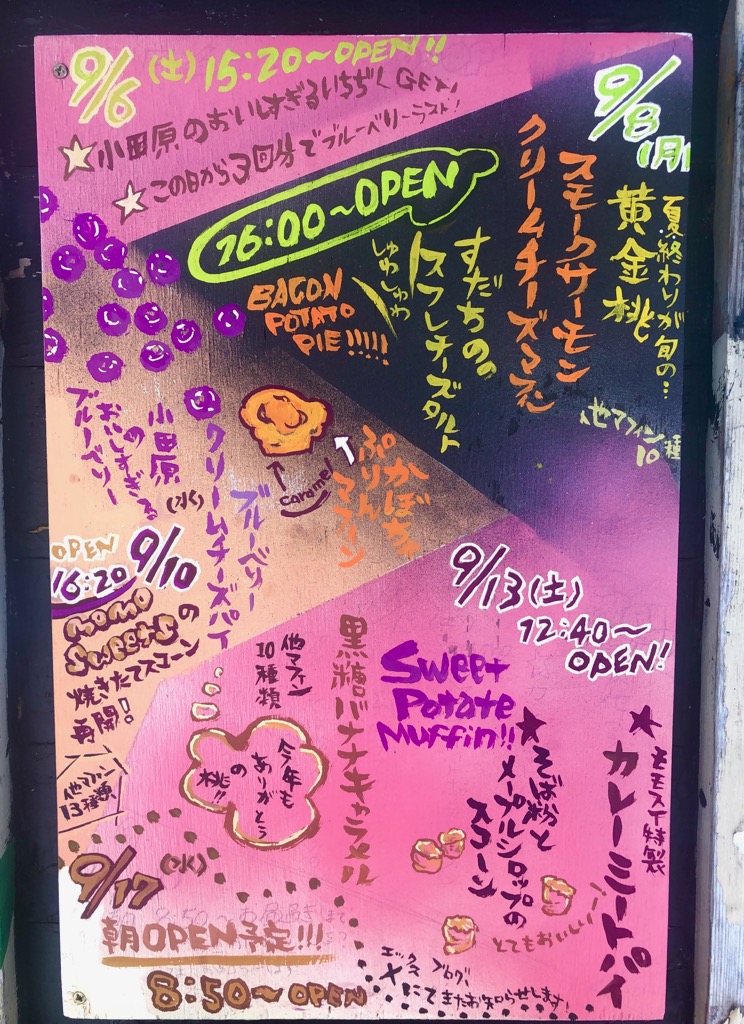 9/6 (土) 15:20~OPEN!!
★小田原のおいしすぎるいちぢくGET!
★この日から3回分でブルーベリーラスト!
9/8 (月)
16:00~OPEN
夏終わりが旬の…
黄金桃
スモークサーモン
クリームチーズマフィン
すだちの。
スフレチーズタルト
しゅわしゅわ
BACON
POTATO
PIE!!!!!
他マフィン
10種
かぼちゃ
ぷりん
マフィン
caramel
小田原
の
おいしすぎる
ブルーベリー
ブルーベリー
クリームチーズパイ
9/10 (水)
OPEN
16:20
momo
sweetsの
焼きたてスコーン
再開!
他マフィン
13種類
9/13 (土)
12:40~
OPEN!
★モモスイ特製
カレーミートパイ
Sweet
Potato
Muffin!!
★そば粉と
メープルシロップの
スコーン
とてもおいしい
黒糖バナナキャラメル
他マフィン
10種類
今年も
ありがとう
の
桃!!
9/17 (水)
朝OPEN予定!!!
8:50~OPEN
エックス ブログ
Xにてまたお知らせします